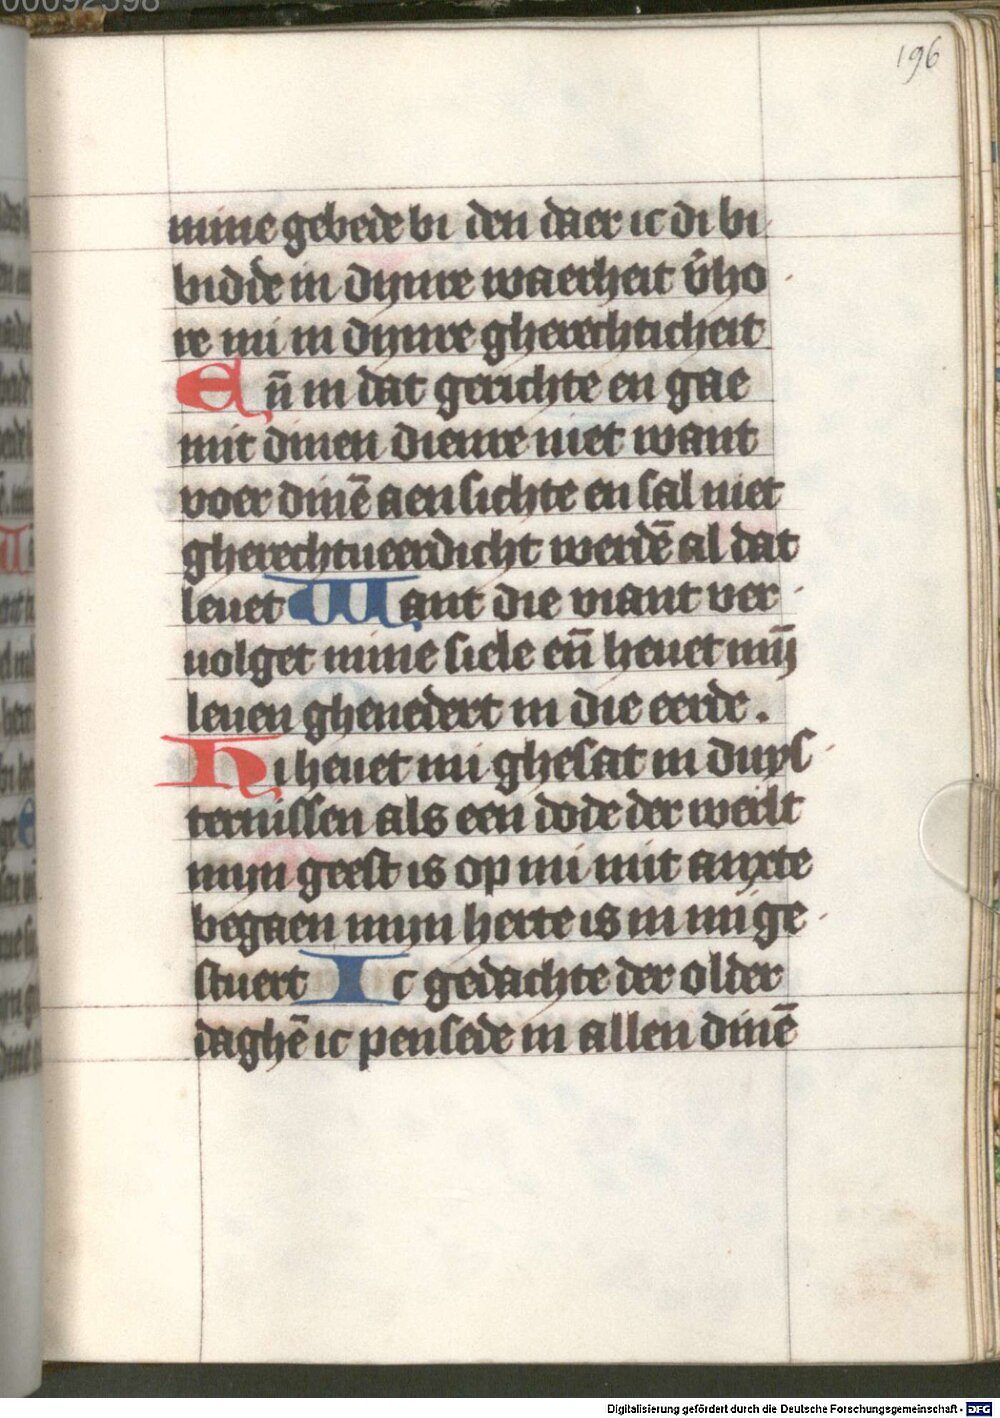 00092598
196
mine gebede bi den daer ic di bi
bidde in dynre waerheit v̄ho
re mi in dynre gherechticheit
En̄ in dat gerichte en gae
mit dinen dienre niet want
voer dinē aensichte en sal niet
gherechtueerdicht werdē al dat
leuet Want die viant ver
uolget mine siele en̄ heuet mȳ
leuen ghenedert in die eerde.
Hi heuet mi ghesat in duys
ternissen als een dode der werlt
mijn geest is op mi mit anxte
begaen mijn herte is in mi ge
stuert Ic gedachte der older
daghē ic pensede in allen dinē
Digitalisierung gefördert durch die Deutsche Forschungsgemeinschaft - DFG